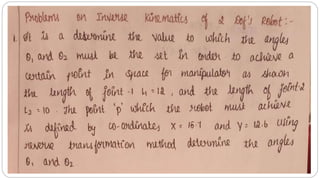 Problems on Inverse Kinematics of 2 Dof's Robot:-
1. It is a determine the value to which the angles
θ1 and θ2 must be the set in order to achieve a
certain point in space for manipulator as shown
the length of joint-1 L1=12, and the length of joint-2
L2=10. The point 'p' which the robot must achieve
is defined by co-ordinates X=15.7 and Y=12.6 Using
reverse transformation method determine the angles
θ1 and θ2